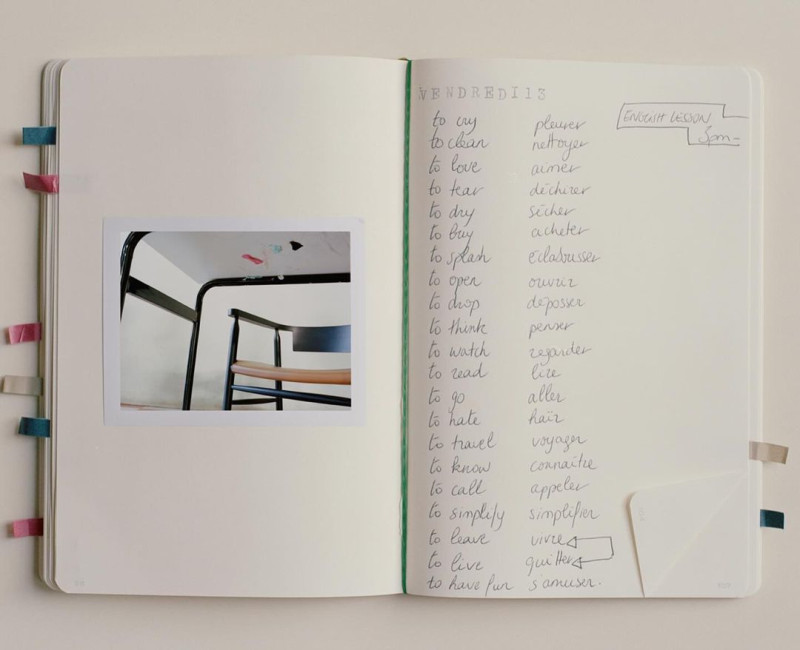 VENDREDI 13
ENGLISH LESSON
5pm-
to cry pleurer
to clean nettoyer
to love aimer
to tear déchirer
to dry sécher
to buy acheter
to splash éclabousser
to open ouvrir
to drop déposser
to think penser
to watch regarder
to read lire
to go aller
to hate haïr
to travel voyager
to know connaître
to call appeler
to simplify simplifier
to leave vivre
to live quitter
to have fun s'amuser.